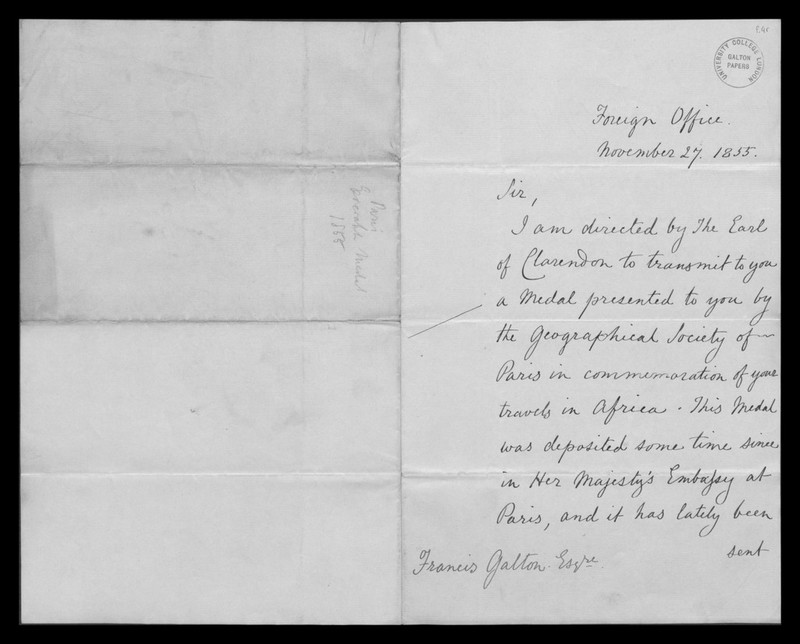 UNIVERSITY COLLEGE LONDON
GALTON
PAPERS
Foreign Office.
November 27. 1855.
Sir,
I am directed by The Earl
of Clarendon to transmit to you
a Medal presented to you by
the Geographical Society of
Paris in commemoration of your
travels in Africa. This Medal
was deposited some time since
in Her Majesty's Embassy at
Paris, and it has lately been
sent
Francis Galton Esqre.
Paris
Medal